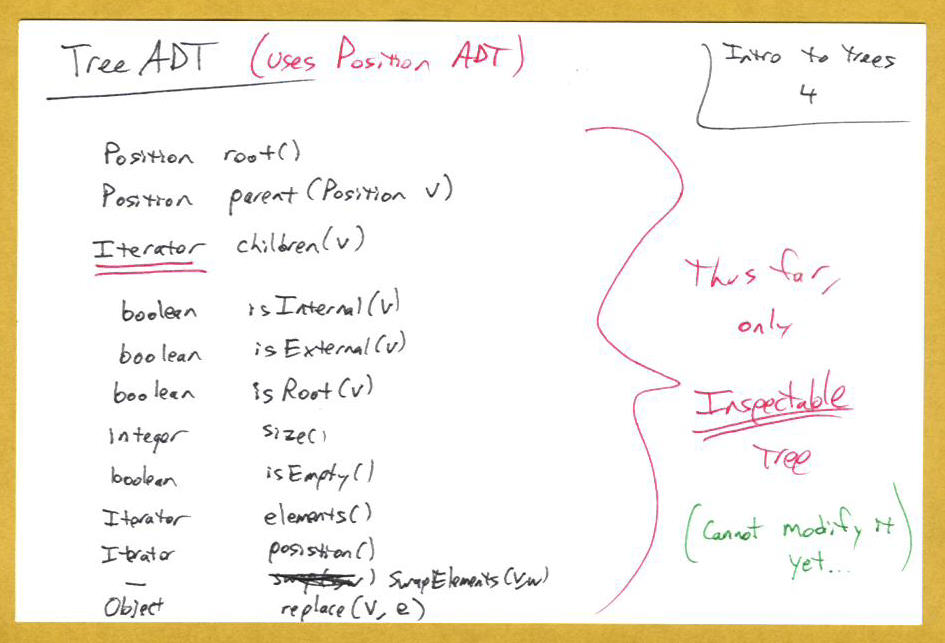 Tree ADT (uses Position ADT)
Intro to trees
4
Position root()
Position parent(Position v)
Iterator children(v)
boolean isInternal(v)
boolean isExternal(v)
boolean isRoot(v)
integer size()
boolean isEmpty()
Iterator elements()
Iterator posistion()
— ) SwapElements(v,w)
Object replace(v, e)
Thus far,
only
Inspectable
Tree
(Cannot modify it
yet...)